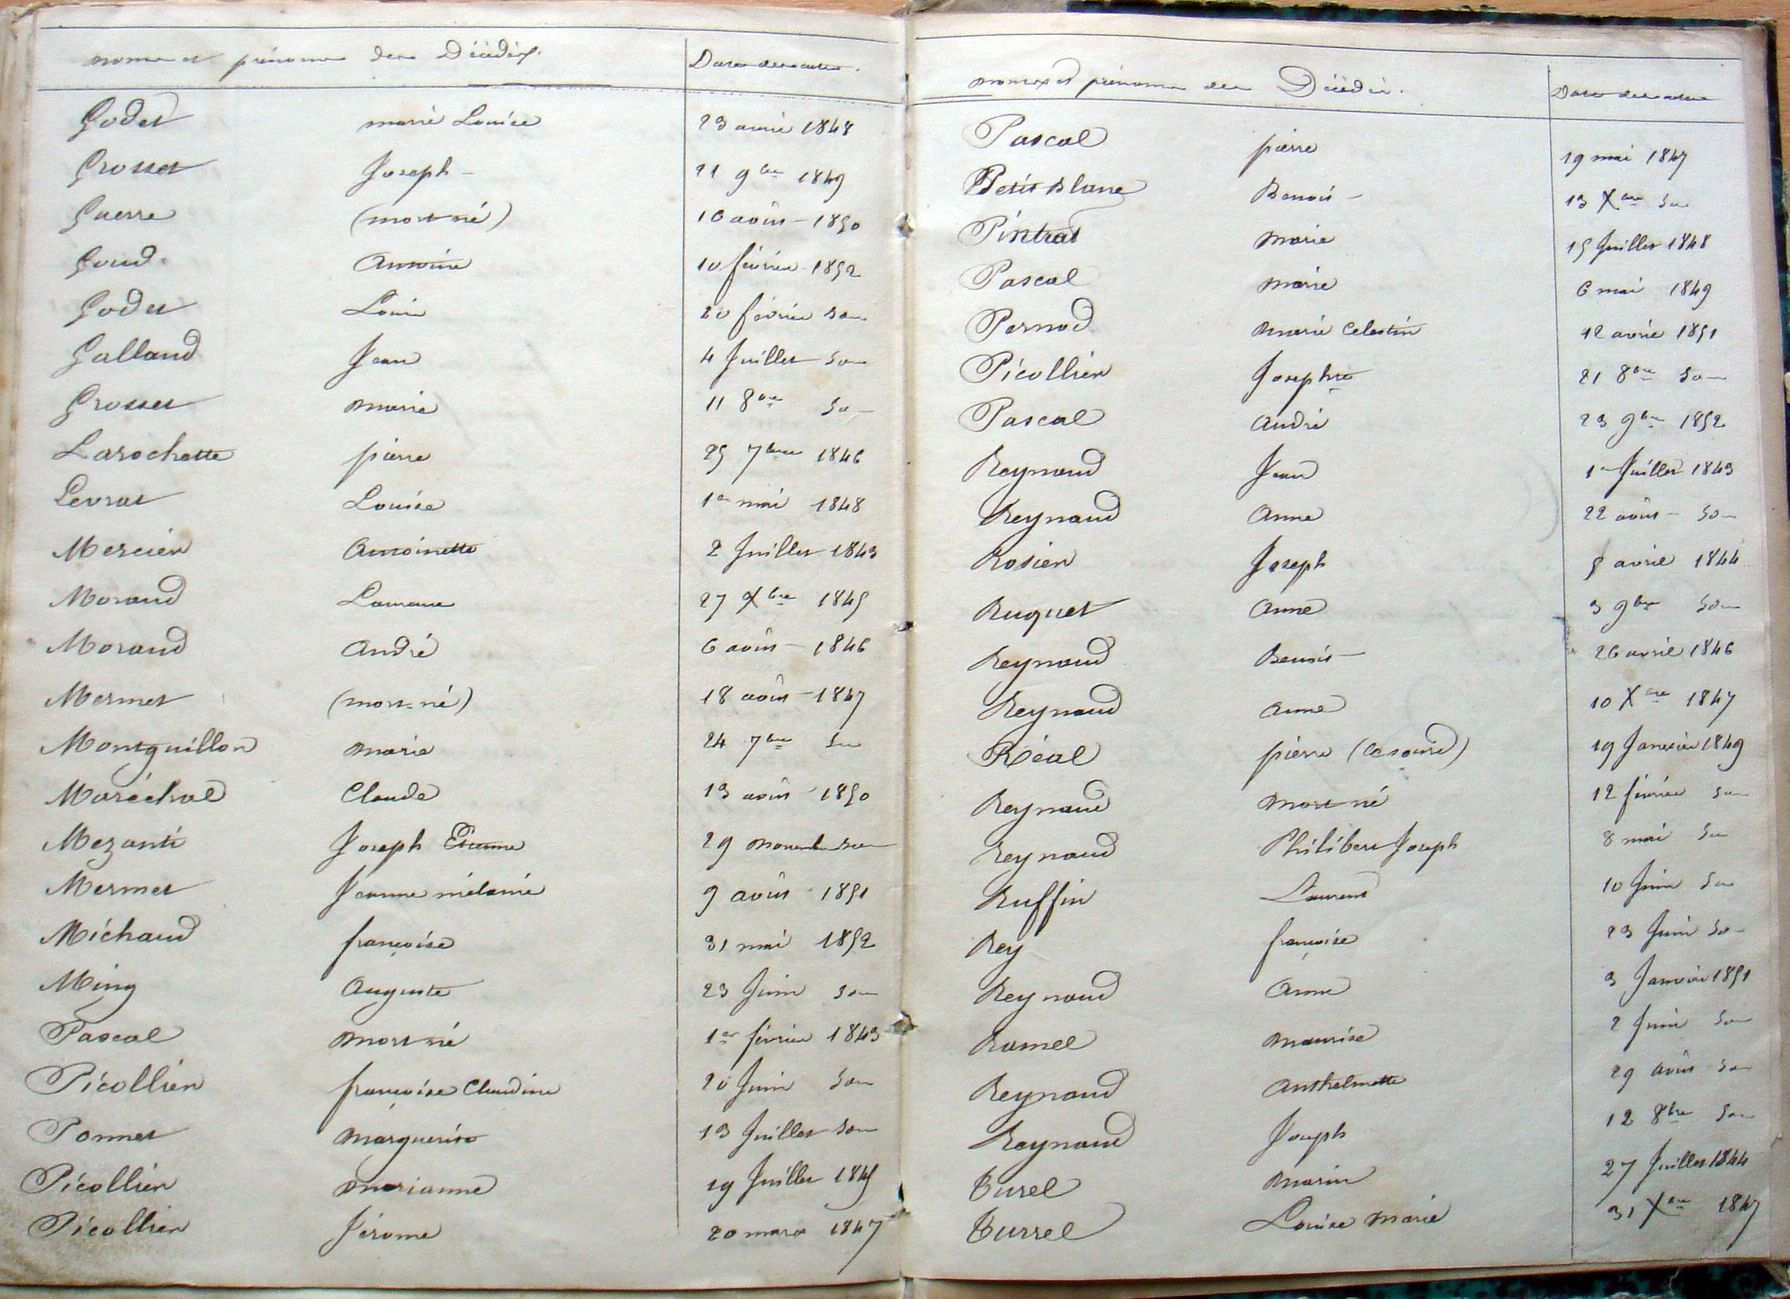 noms et prénoms des Décédés. Dates des actes.
Godet marie Louise 23 avril 1848
Grosset Joseph 21 9bre 1849
Guerre (mort-né) 10 août 1850
Goud Antoine 10 février 1852
Godet Louis 20 février do
Galland Jean 4 Juillet do
Grosset marie 11 8bre do
Larochette pierre 25 7bre 1846
Levrat Louise 1er mai 1848
Mercier Antoinette 2 Juillet 1843
Morand Laurence 27 Xbre 1845
Morand André 6 août 1846
Mermet (mort-né) 18 août 1847
Montguillon marie 24 7bre do
Maréchal Claude 13 août 1850
Mezanti Joseph Etienne 29 novemb do
Mermet Jeanne mélanie 9 août 1851
Michaud françoise 31 mai 1852
Ming Auguste 23 Juin do
Pascal mort né 1er février 1843
Picollier françoise Claudine 20 Juin do
Ponnet marguerite 13 Juillet do
Picollier marianne 19 Juillet 1845
Picollier Jérome 20 mars 1847
noms et prénoms des Décédés. Dates des actes
Pascal pierre 19 mai 1847
Petit-Blanc Benoit 13 Xbre do
Pintrat marie 15 Juillet 1848
Pascal marie 6 mai 1849
Pernod marie Celestin 12 avril 1851
Picollier Josephte 21 8bre do
Pascal André 23 9bre 1852
Reynaud Jean 1er Juillet 1843
Reynaud Anne 22 août do
Rosier Joseph 5 avril 1844
Ruguet Anne 3 9bre do
Reynaud Benoit 26 avril 1846
Reynaud Anne 10 Xbre 1847
Réal pierre 19 Janvier 1849
Reynaud mort né 12 février do
Reynaud Philibert Joseph 8 mai do
Ruffin Laurent 10 Juin do
Rey françoise 23 Juin do
Reynaud Anne 3 Janvier 1851
Ramel maurise 2 Juin do
Reynaud Anthelmette 29 août do
Reynaud Joseph 12 8bre do
Turel marin 27 Juillet 1844
Turrel Louise Marie 31 Xbre 1847